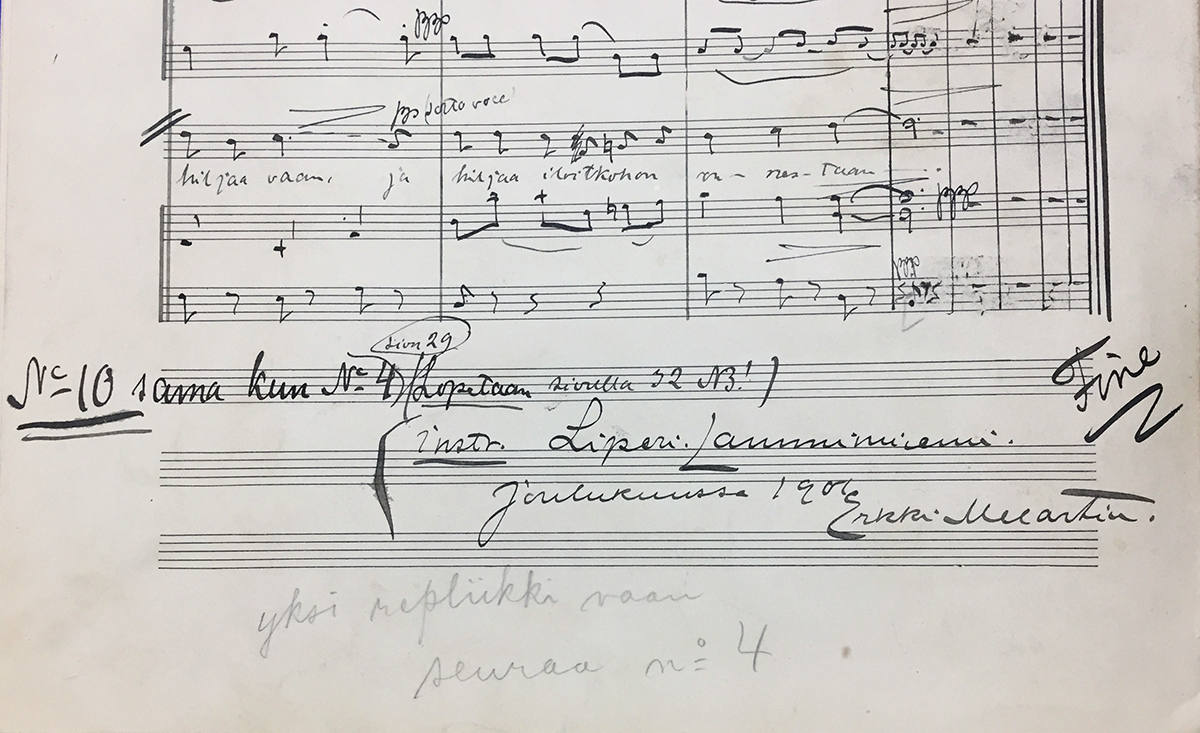 ppp
pp sotto voce
hiljaa vaan, ja hiljaa iloitkohon on- nes- taan
ppp
sivu 29
No 10 sama kun No 4 (Lopetaan sivulla 32 NB!)
Fine
instr. Liperi. Lamminniemi.
Joulukuussa 190
Erkki Melartin.
yksi repliikki vaan
seuraa no 4